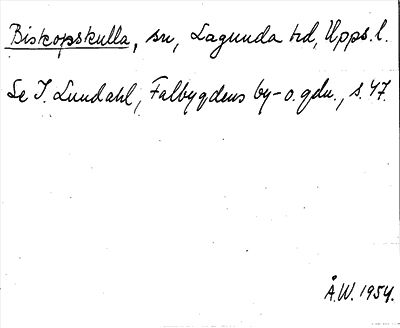 Biskopskulla, sn, Lagunda hd, Upps. l.
Se I. Lundahl, Falbygdens by- o. gdn., s. 47.
Å.W. 1954.